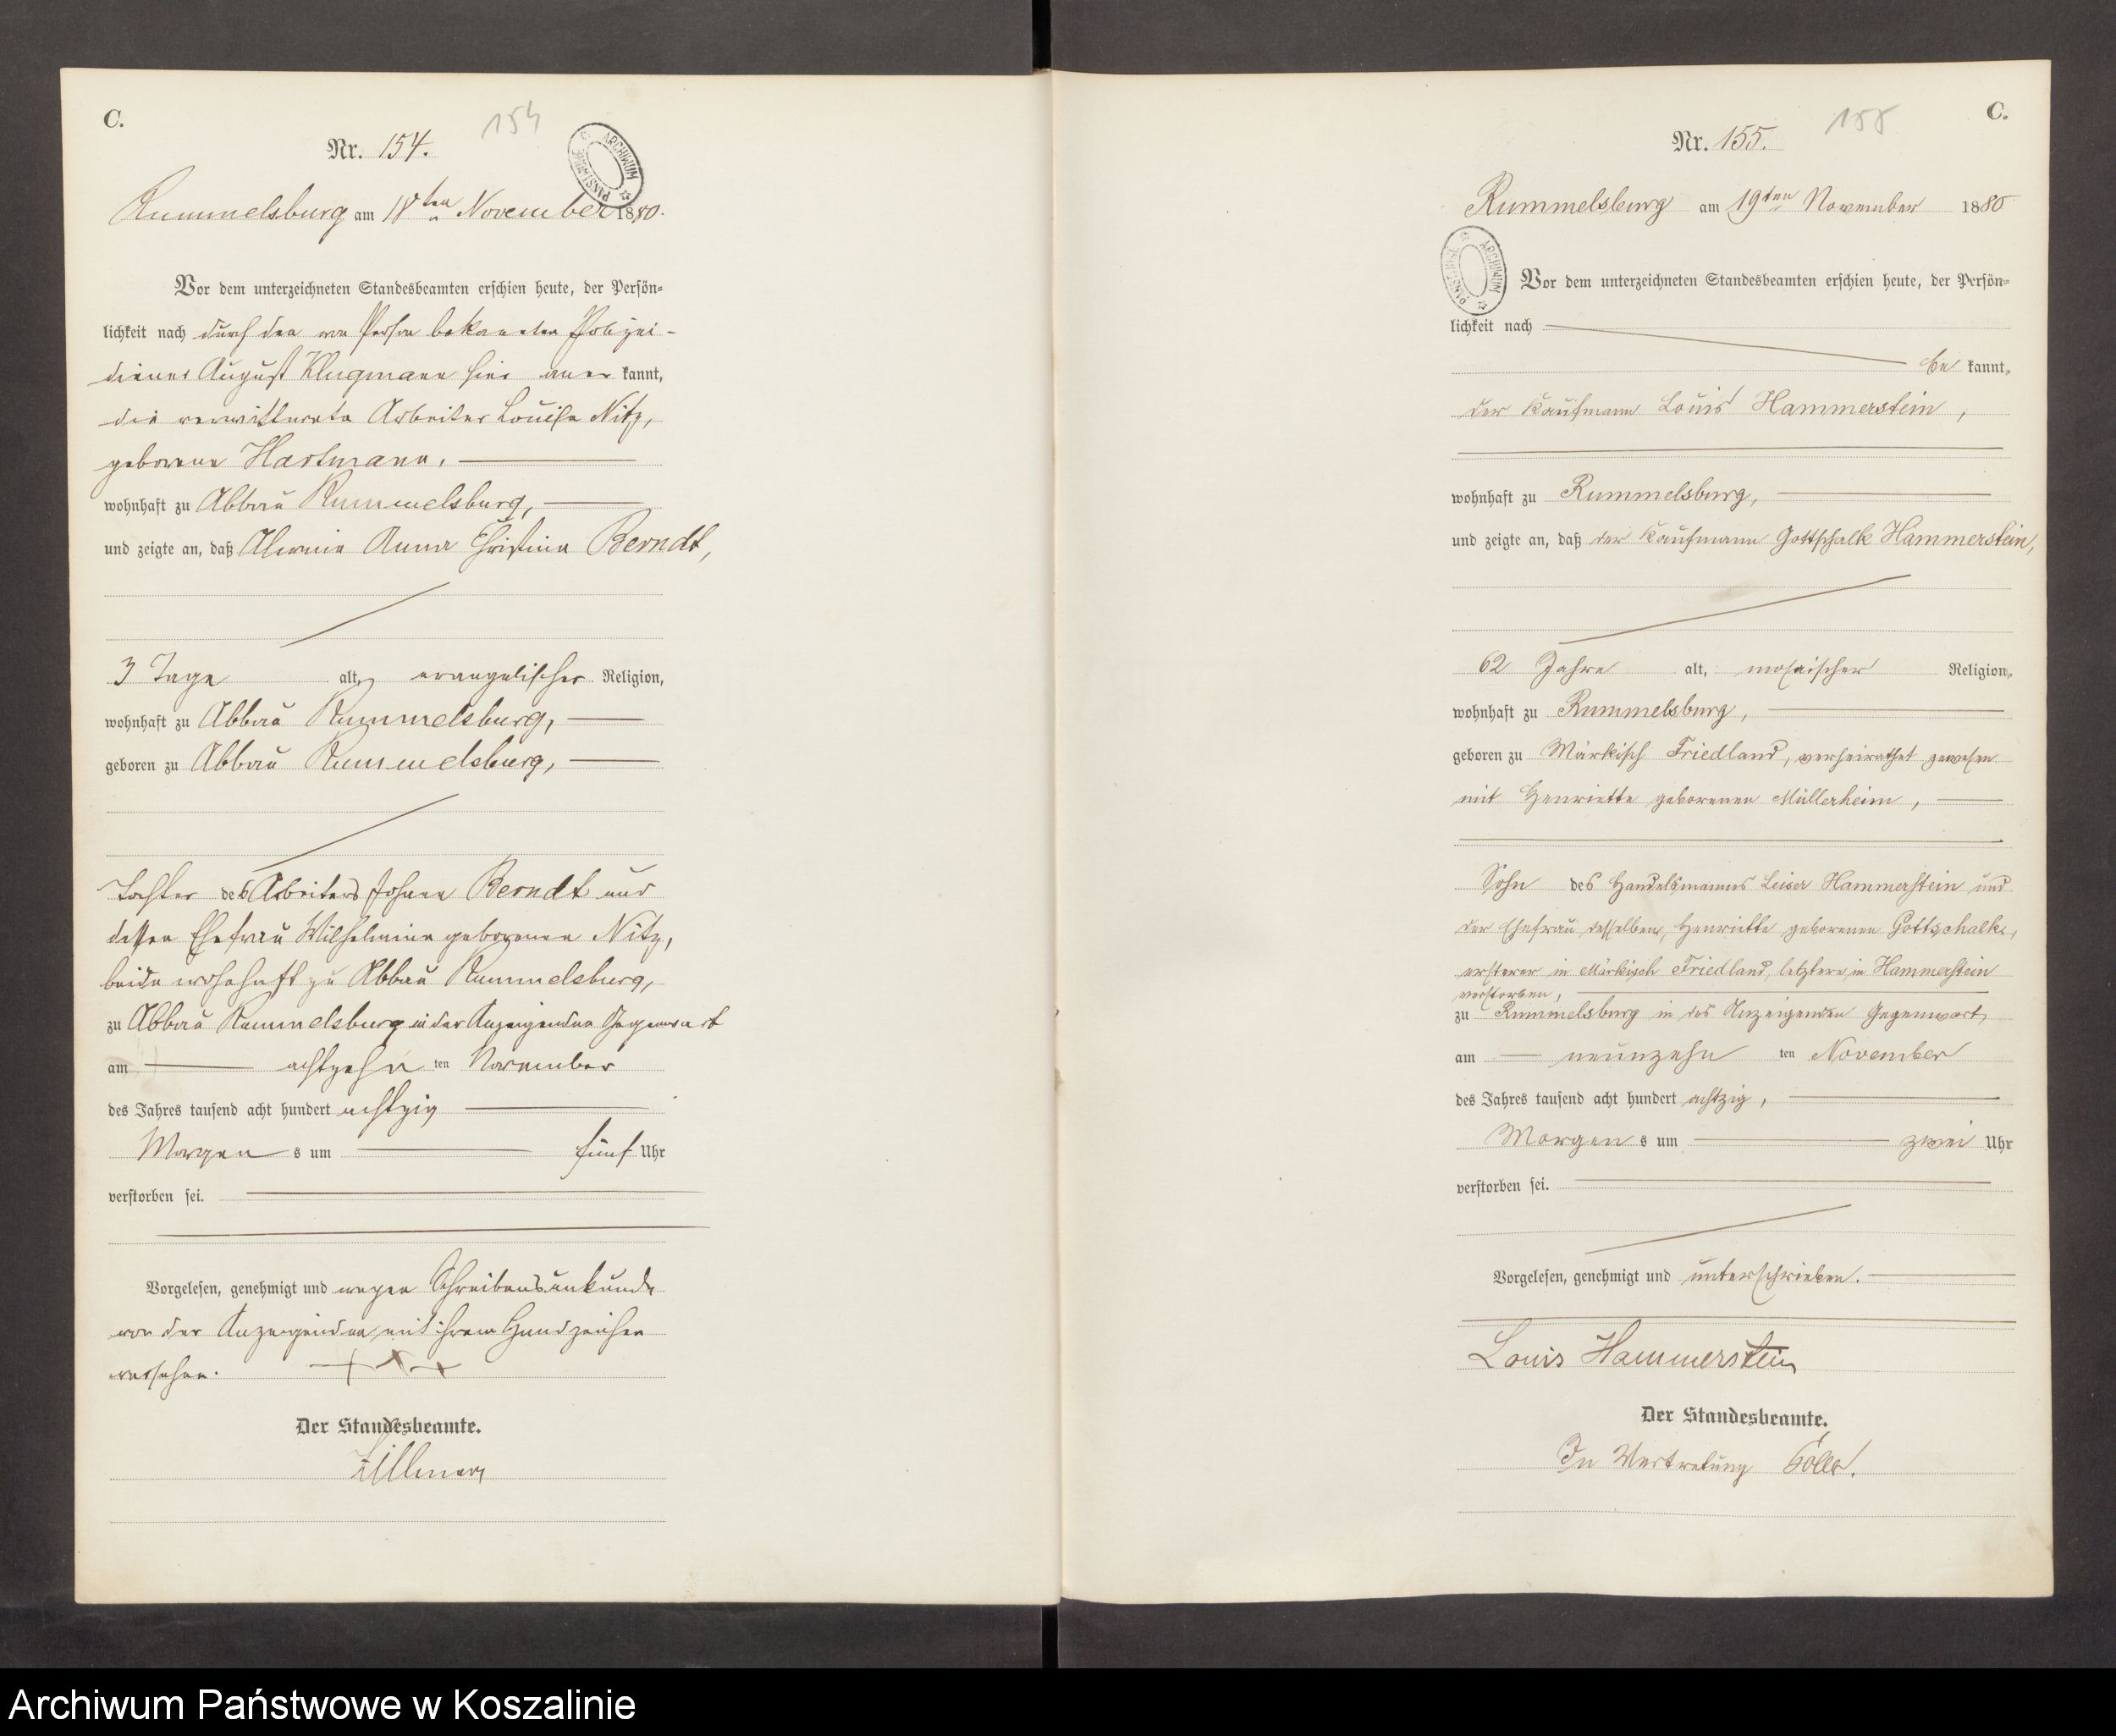 C.
154
Nr. 154.
ARCHIWUM PAŃSTWOWE
Rummelsburg am 18ten November 1880.
Vor dem unterzeichneten Standesbeamten erschien heute, der Persön-
lichkeit nach durch den von Person bekannten Polizei-
diener August Klugmann hier aner kannt,
die verwittwete Arbeiter Louise Nitz,
geborene Hartmann,
wohnhaft zu Abbau Rummelsburg,
und zeigte an, daß Alwine Anna Christine Berndt,
3 Tage alt, evangelischer Religion,
wohnhaft zu Abbau Rummelsburg,
geboren zu Abbau Rummelsburg,
Tochter des Arbeiters Johann Berndt und
dessen Ehefrau Wilhelmine geborenen Nitz,
beide wohnhaft zu Abbau Rummelsburg,
zu Abbau Rummelsburg in der Anzeigenden Gegenwart
am achtzehn ten November
des Jahres tausend acht hundert achtzig
Morgen s um fünf Uhr
verstorben sei.
Vorgelesen, genehmigt und wegen Schreibensunkunde
von der Anzeigenden mit ihrem Handzeichen
versehen. +++
Der Standesbeamte.
C.
155
Nr. 155.
Rummelsburg am 19ten November 1880
ARCHIWUM PAŃSTWOWE
Vor dem unterzeichneten Standesbeamten erschien heute, der Persön-
lichkeit nach
be kannt,
der Kaufmann Louis Hammerstein,
wohnhaft zu Rummelsburg,
und zeigte an, daß der Kaufmann Gottschalk Hammerstein,
62 Jahre alt, mosaischer Religion,
wohnhaft zu Rummelsburg,
geboren zu Märkisch Friedland, verheirathet gewesen
mit Henriette geborenen Müllerheim,
Sohn des Handelsmannes Leiser Hammerstein und
der Ehefrau desselben, Henriette geborenen Gottschalk,
ersterer in Märkisch Friedland, letztere in Hammerstein
verstorben,
zu Rummelsburg in des Anzeigenden Gegenwart,
am neunzehn ten November
des Jahres tausend acht hundert achtzig,
Morgen s um zwei Uhr
verstorben sei.
Vorgelesen, genehmigt und unterschrieben.
Louis Hammerstein
Der Standesbeamte.
In Vertretung
Archiwum Państwowe w Koszalinie